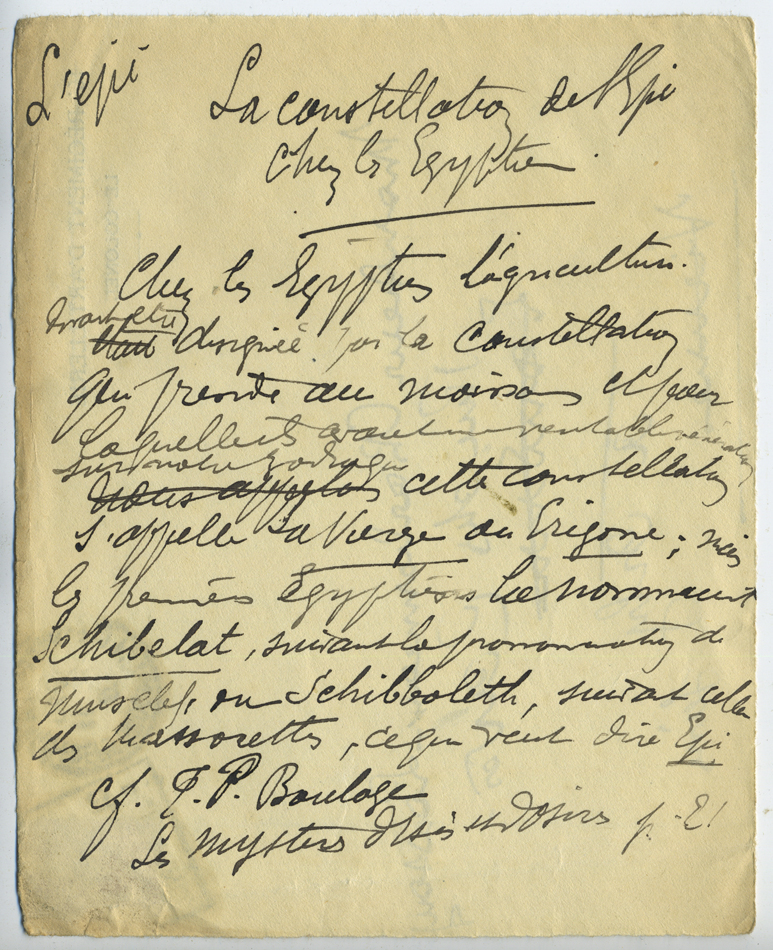 L'epi
La constellation de l'Epi
Chez les Egyptiens.
Chez les Egyptiens l'agriculture
était désignée par la constellation
qui préside aux moissons et pour
laquelle ils avaient une véritable vénération
sur notre zodiaque
nous appelons cette constellation
s'appelle La Vierge ou Erigone ; mais
les premiers Egyptiens la nommaient
Schibelat, suivant la prononciation de
ou Schibboleth, suivant celle
des Massorettes, ce qui veut dire Epi
cf. T. P. Boulage
Les mystères d'Isis et d'Osiris p. 21